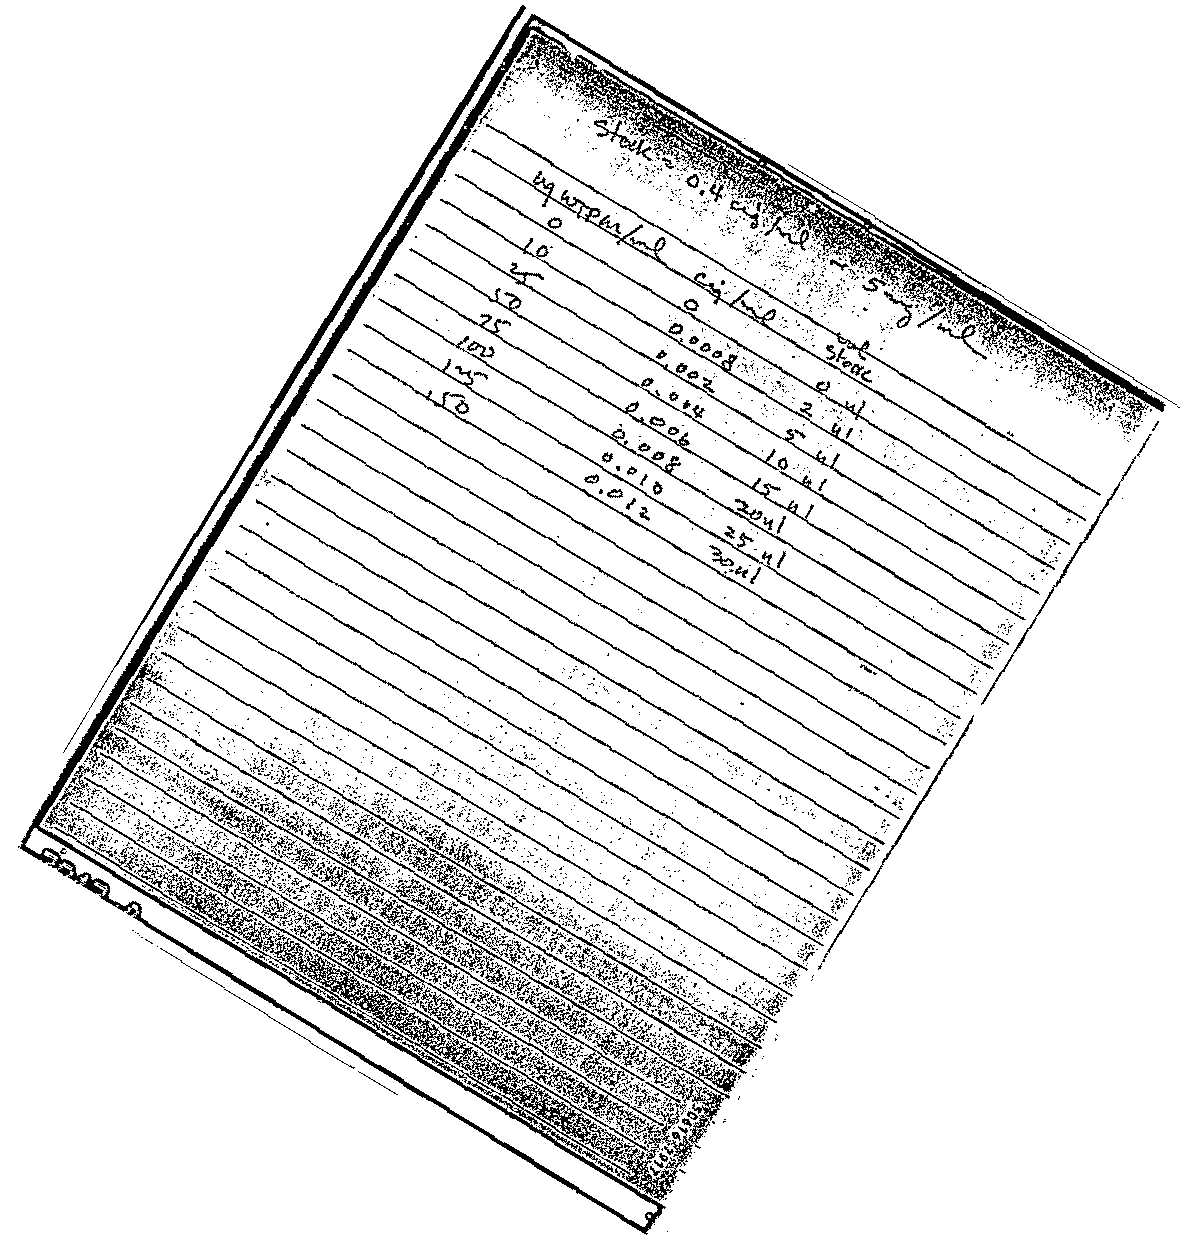 Stock ~ 0.4 cig/ml ~ 5 mg/ml
ug WTPM/ml cig/ml vol stock
0 0 0 ul
10 0.0008 2 ul
25 0.002 5 ul
50 0.004 10 ul
75 0.006 15 ul
100 0.008 20 ul
125 0.010 25 ul
150 0.012 30 ul